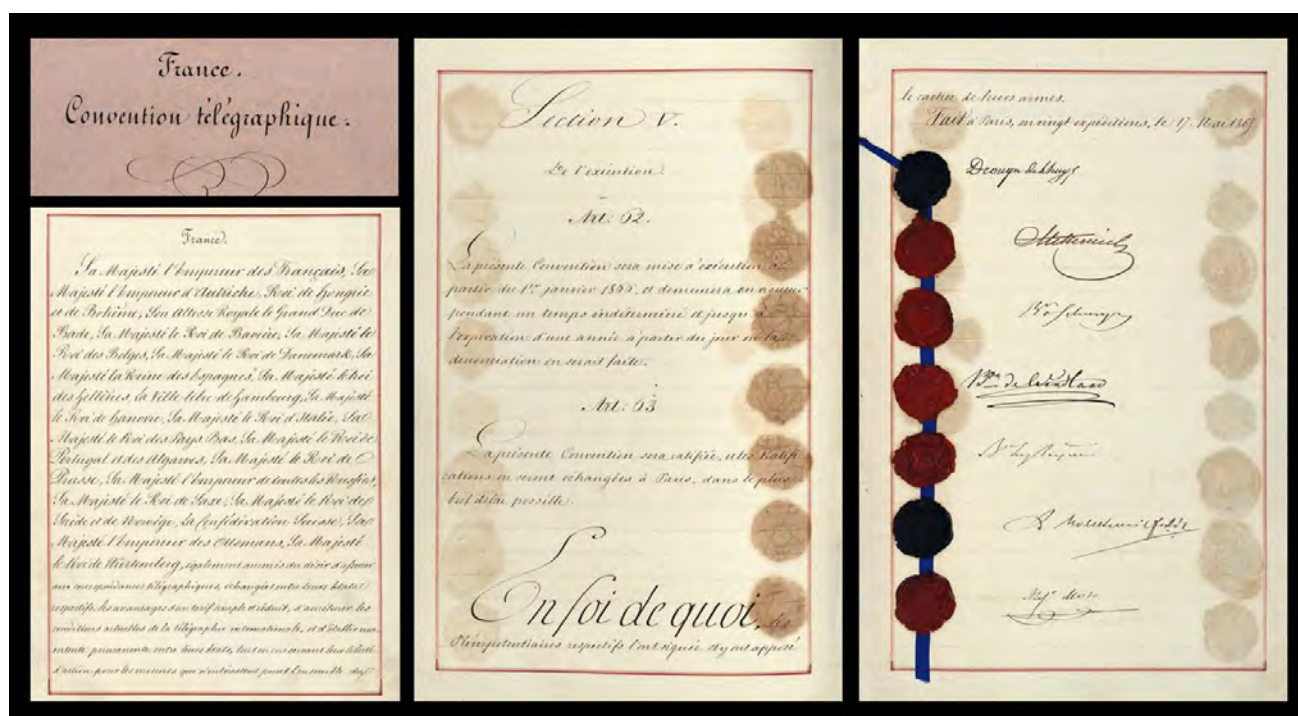 France.
Convention télégraphique.
France.
Sa Majesté l'Empereur des Français, Sa
Majesté l'Empereur d'Autriche, Roi de Hongrie
et de Bohême, Son Altesse Royale le Grand Duc de
Bade, Sa Majesté le Roi de Bavière, Sa Majesté le
Roi des Belges, Sa Majesté le Roi de Danemark, Sa
Majesté la Reine des Espagnes, Sa Majesté le Roi
des Hellènes, la Ville libre de Hambourg, Sa Majesté
le Roi de Hanovre, Sa Majesté le Roi d'Italie, Sa
Majesté le Roi des Pays Bas, Sa Majesté le Roi de
Portugal et des Algarves, Sa Majesté le Roi de
Prusse, Sa Majesté l'Empereur de toutes les Russies,
Sa Majesté le Roi de Saxe, Sa Majesté le Roi de
Suède et de Norwège, la Confédération Suisse, Sa
Majesté l'Empereur des Ottomans, Sa Majesté
le Roi de Würtemberg, également animés du désir d'assurer
aux correspondances télégraphiques, échangées entre leurs Etats
respectifs, les avantages d'un tarif simple et réduit, d'améliorer les
conditions actuelles de la télégraphie internationale, et d'établir une
entente permanente entre leurs Etats, tout en conservant leur liberté
d'action pour les mesures qui n'intéressent point l'ensemble du
Section V.
De l'exécution.
Art: 62.
La présente Convention sera mise à exécution à
partir du 1er janvier 1866, et demeurera en vigueur
pendant un temps indéterminé et jusqu'à
l'expiration d'une année à partir du jour où la
dénonciation en serait faite.
Art: 63
La présente Convention sera ratifiée, et les Ratifi
cations en seront échangées à Paris, dans le plus
bref délai possible.
En foi de quoi, les
Plénipotentiaires respectifs l'ont signée et y ont apposé
le cachet de leurs armes.
Fait à Paris, en vingt expéditions, le 17 Mai 1865.
Drouyn de Lhuys
Metternich